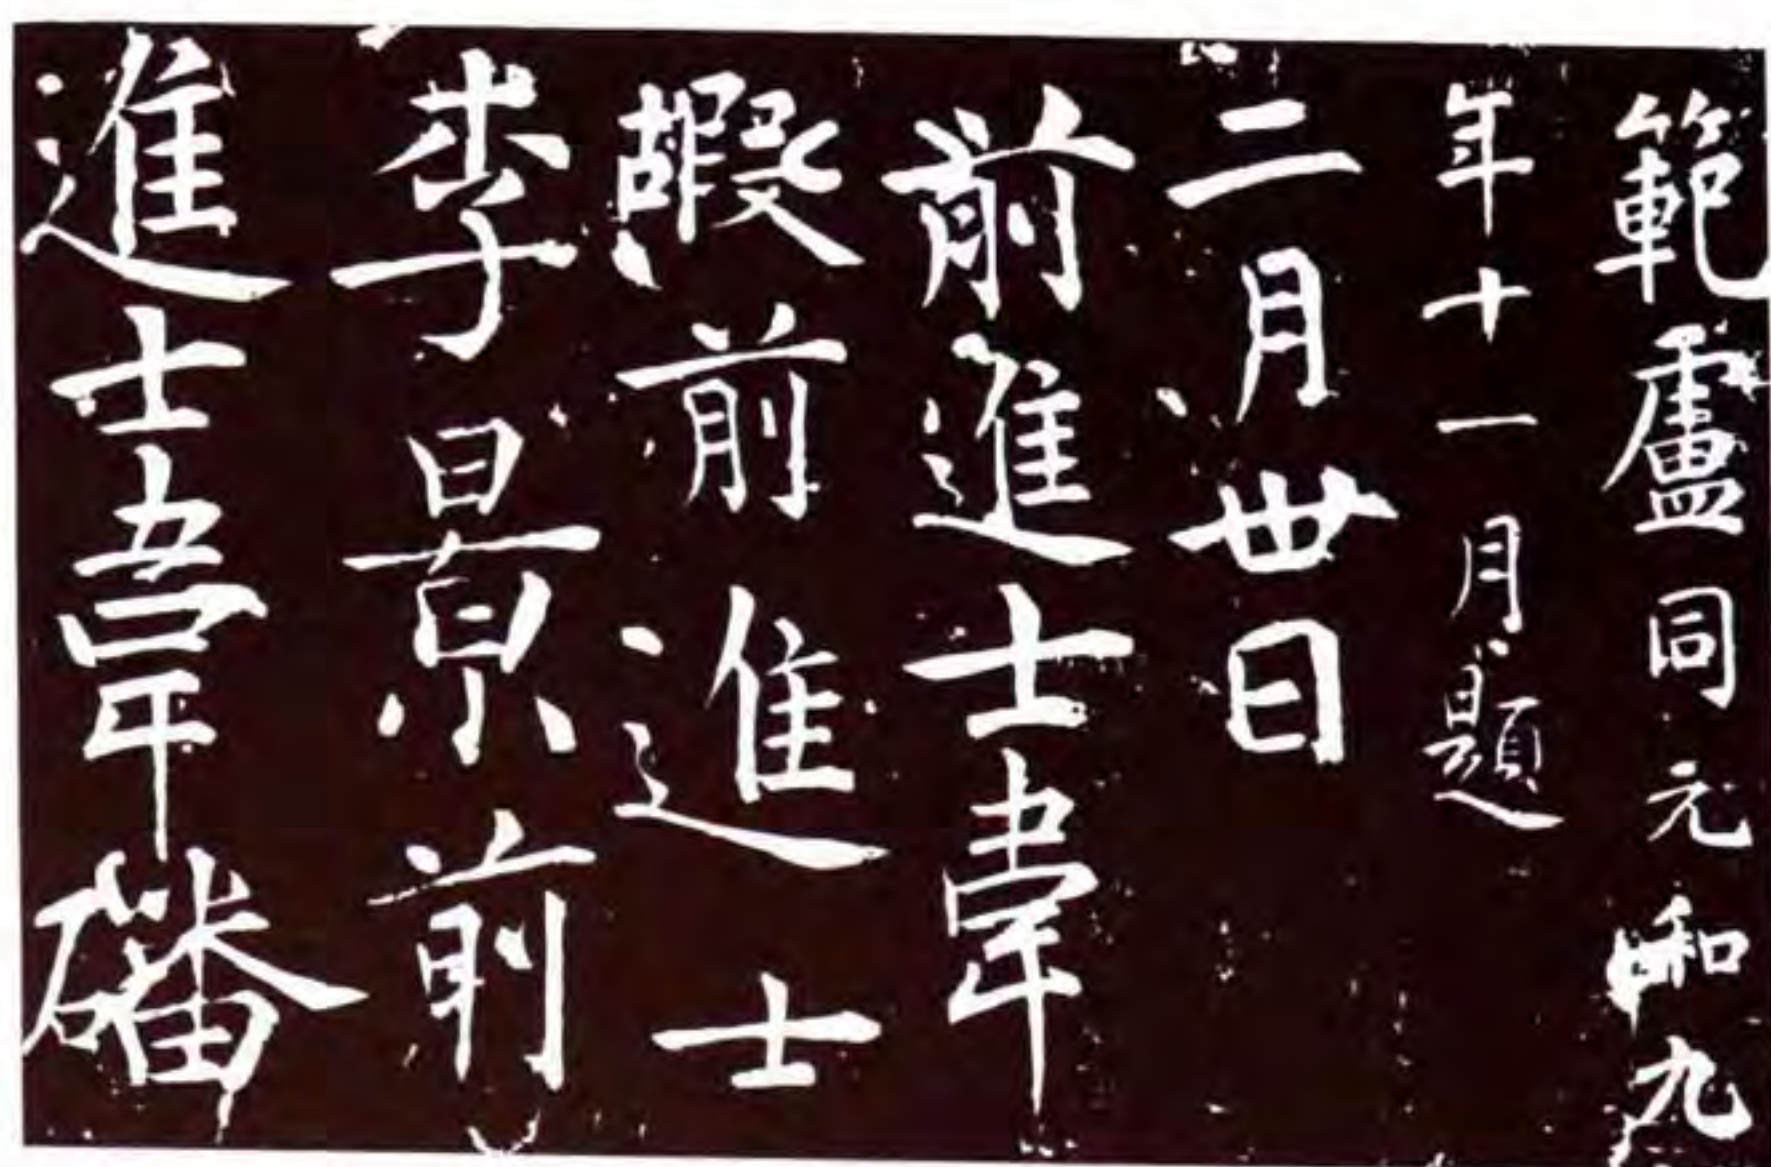 範盧同元和九
年十一月題
二月卅日
前進士韋
嘏前進士
李景前
進士韋磻